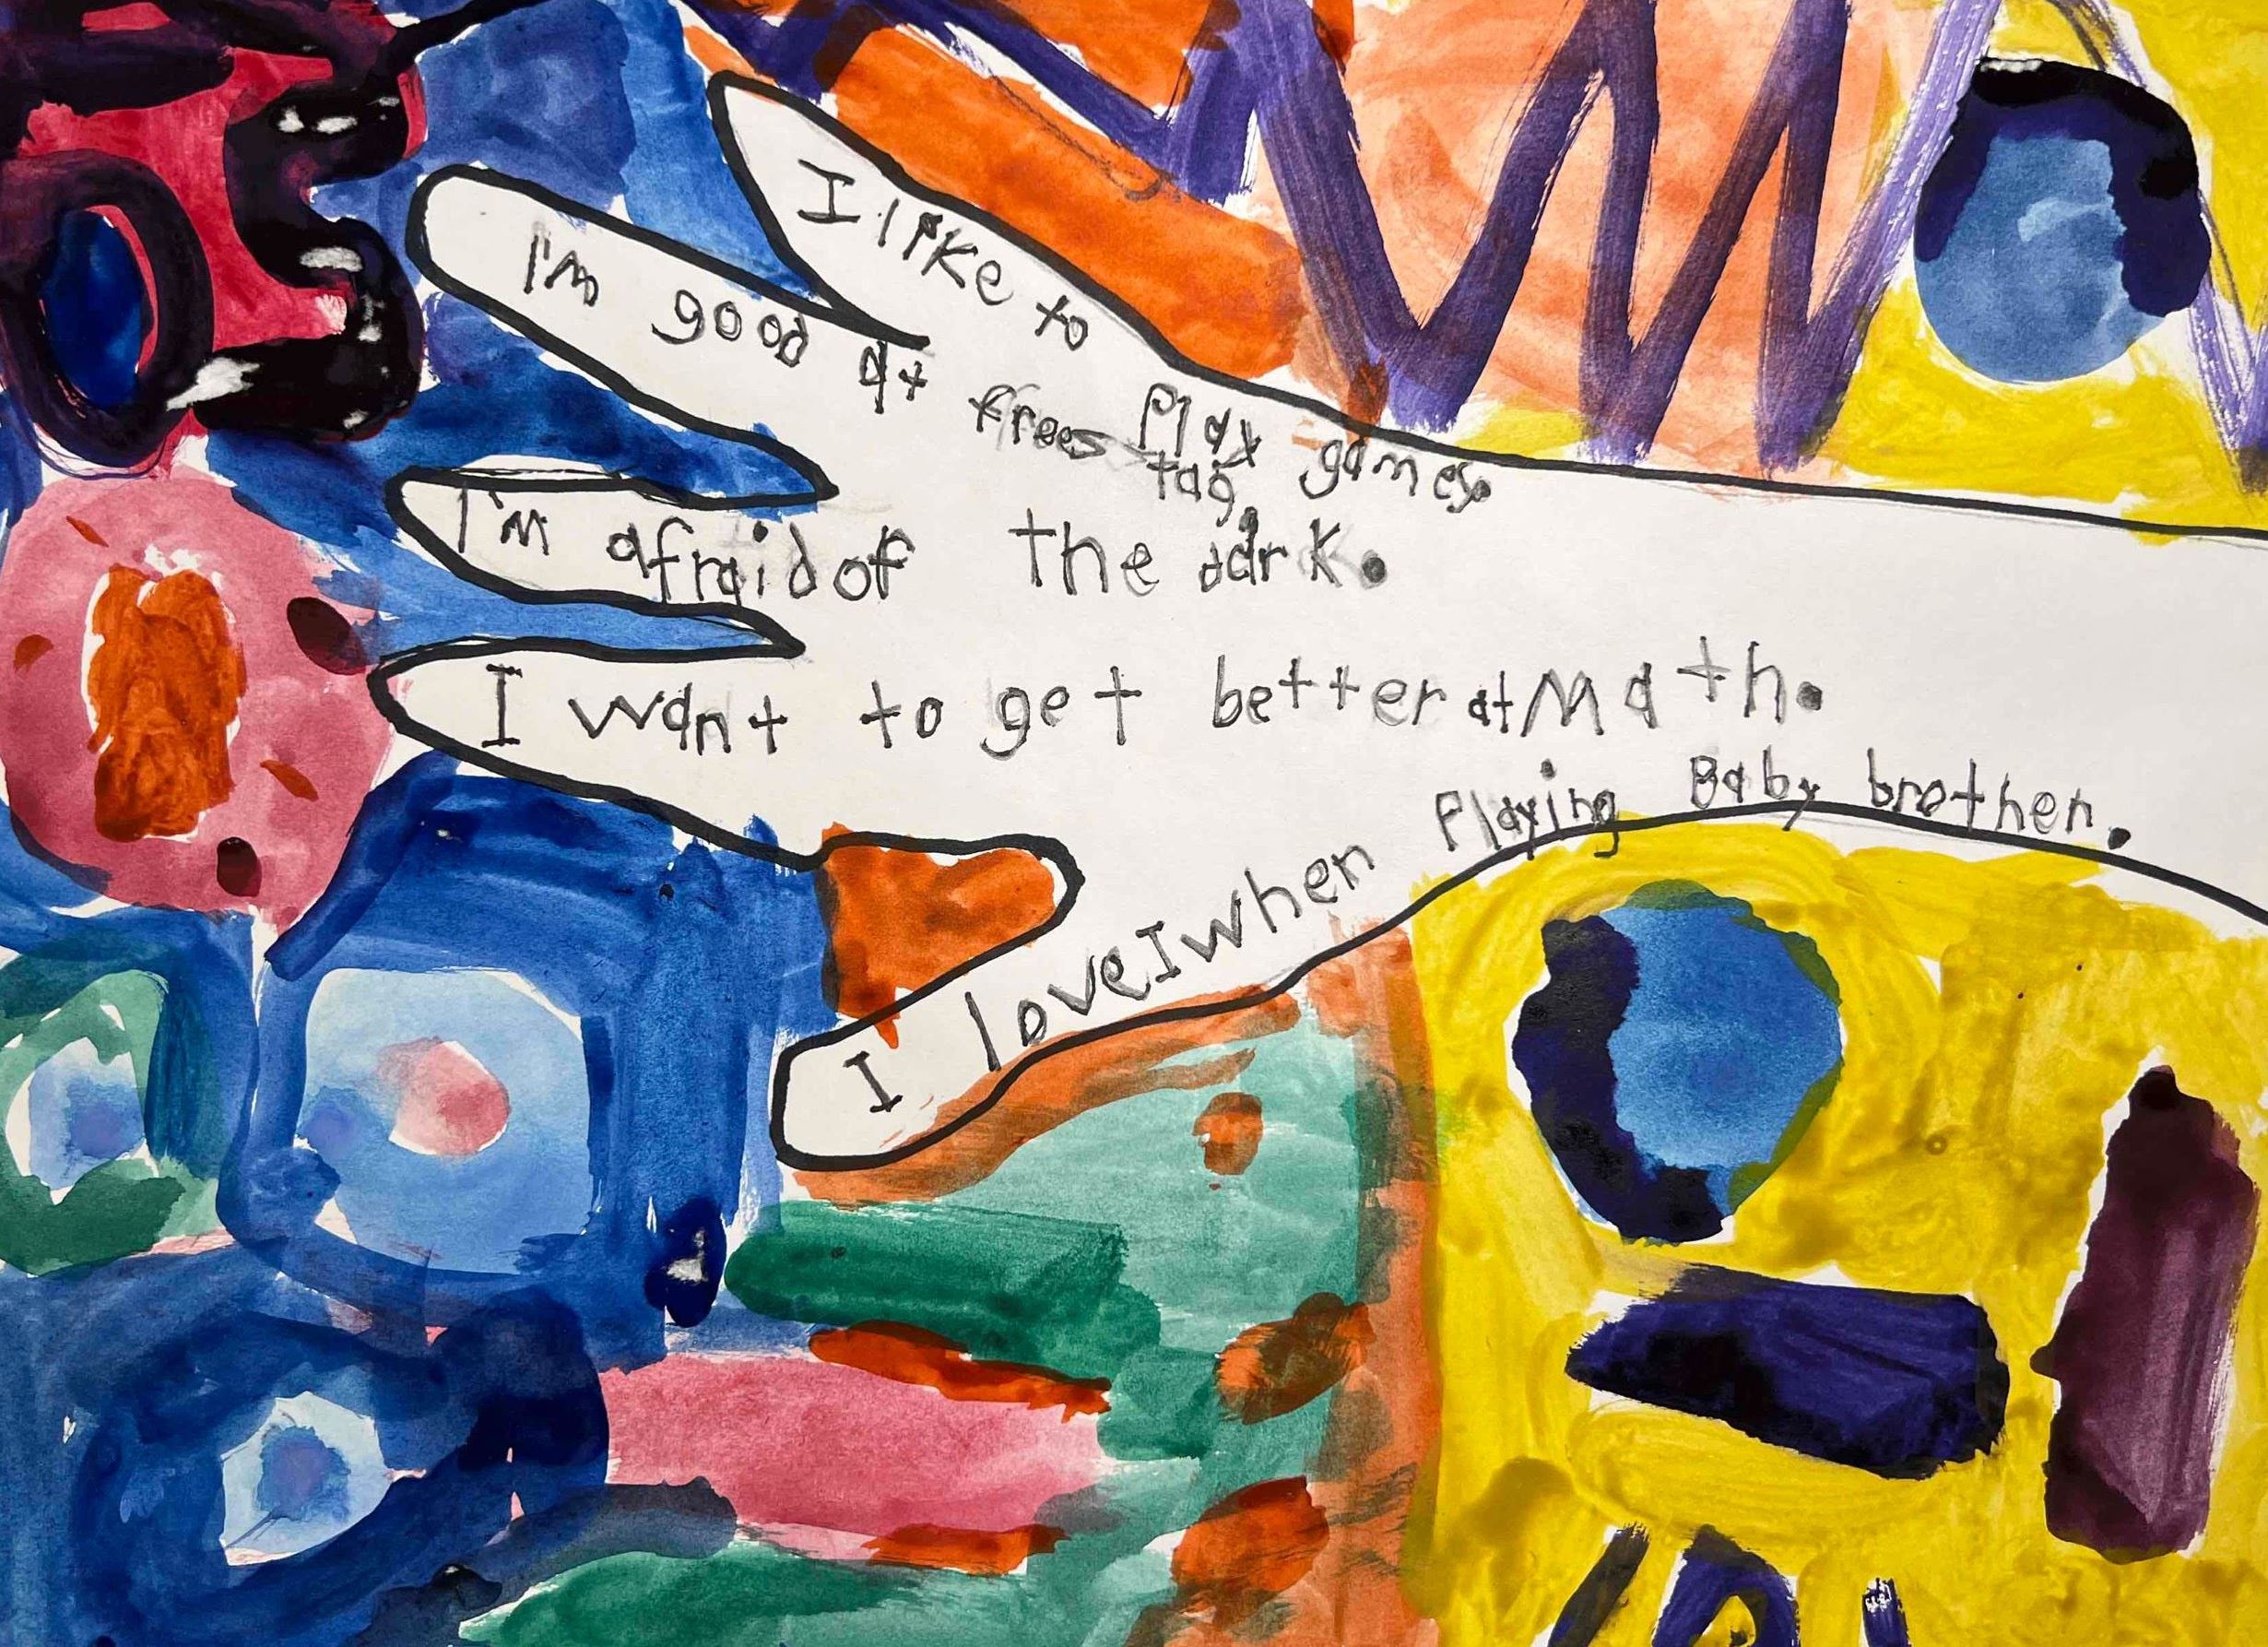 I like to play games.
I'm good at frees tag.
I'm afraid of the dark.
I want to get better at Math.
I love I when Playing Baby brother.